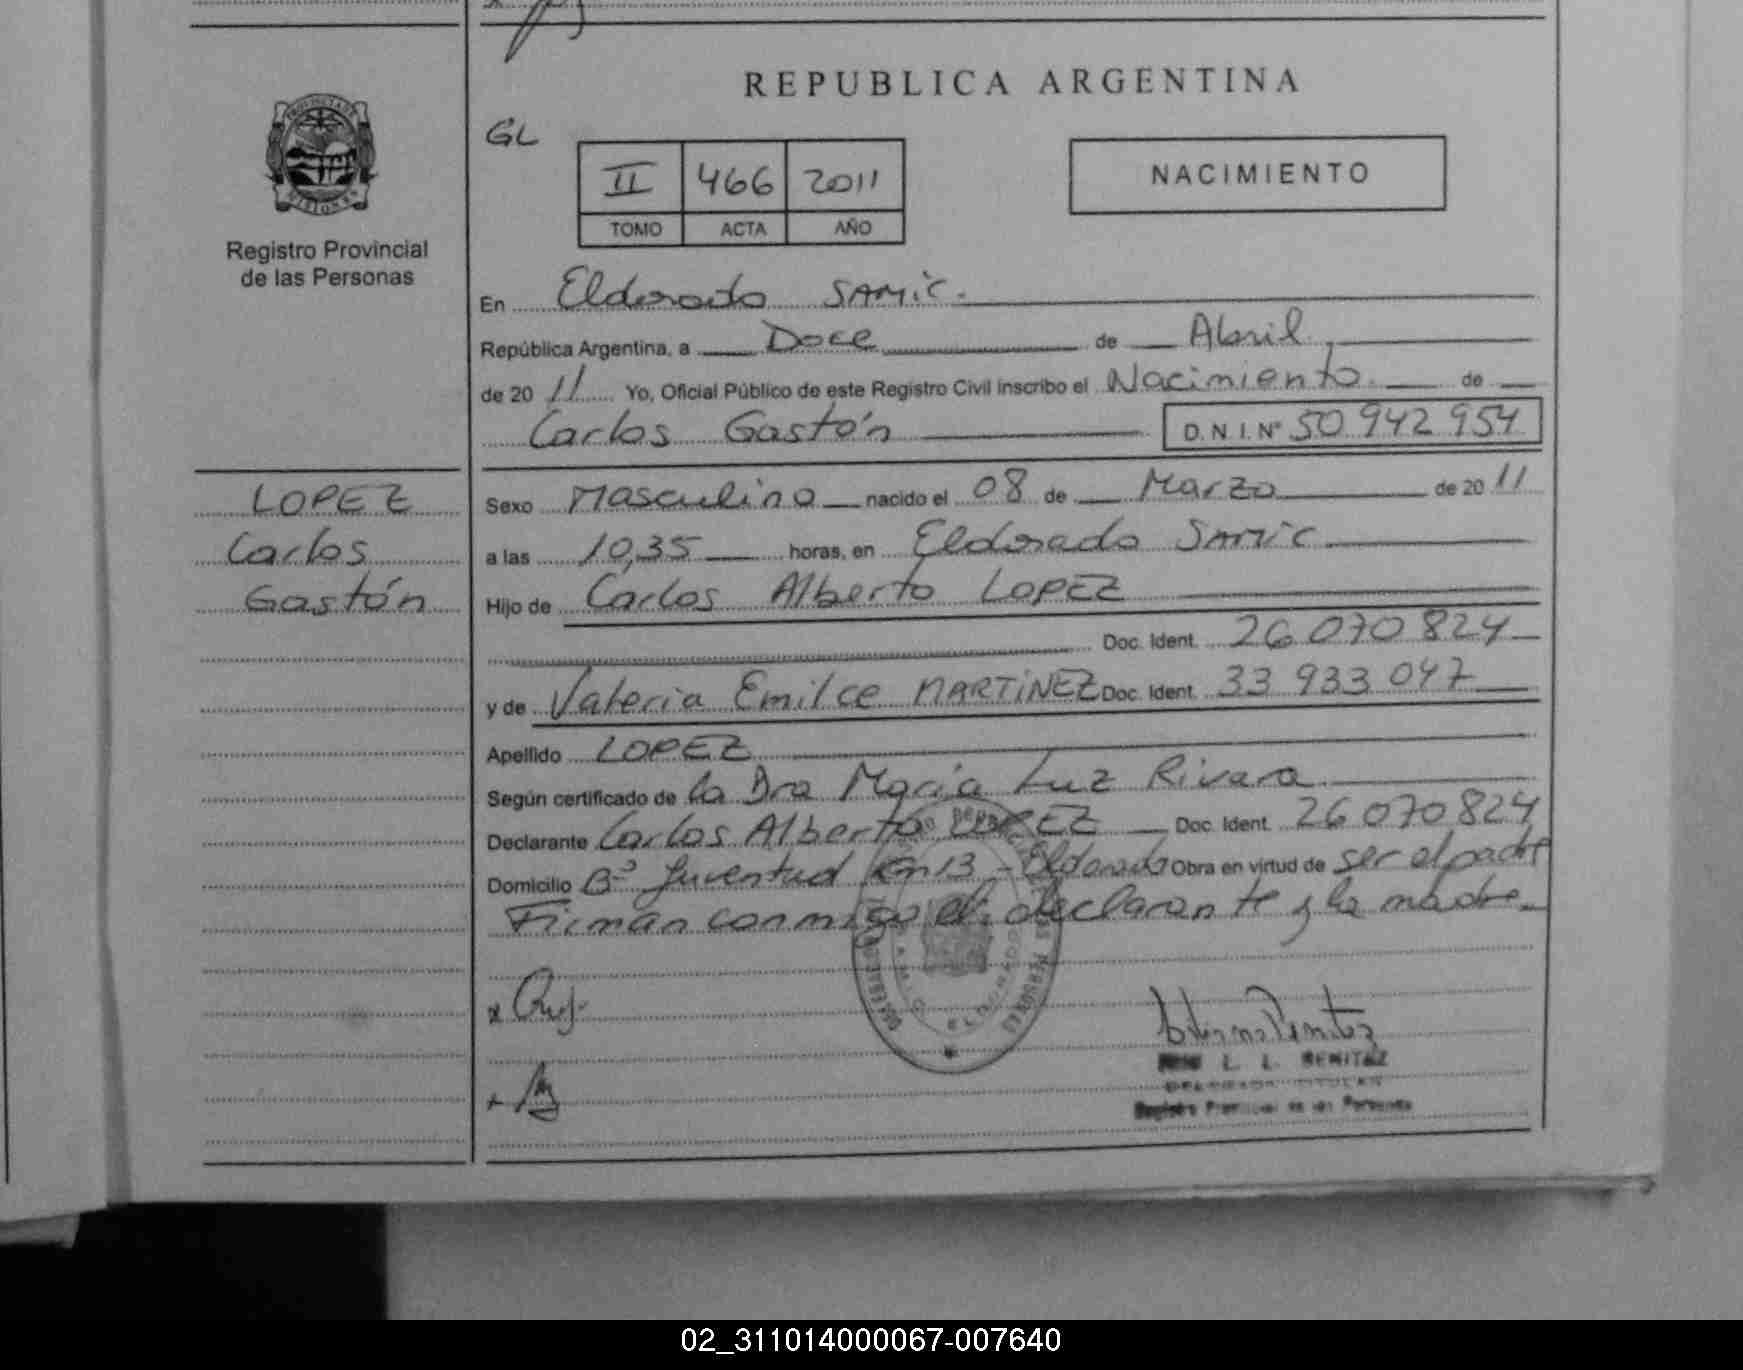 REPUBLICA ARGENTINA
GL
II 466 2011
TOMO ACTA AÑO
NACIMIENTO
Registro Provincial
de las Personas
En Eldorado SAMIC.
República Argentina, a Doce de Abril,
de 2011 Yo, Oficial Público de este Registro Civil inscribo el Nacimiento de
Carlos Gastón D.N.I. Nº 50 942 954
LOPEZ
Carlos
Gastón
Sexo Masculino nacido el 08 de Marzo de 2011
a las 10,35 horas, en Eldorado SAMIC
Hijo de Carlos Alberto LOPEZ
Doc. Ident. 26 070 824
y de Valeria Emilce MARTINEZ Doc. Ident. 33 933 047
Apellido LOPEZ
Según certificado de la Dra María Luz Rivara
Declarante Carlos Alberto LOPEZ Doc. Ident. 26 070 824
Domicilio Bº Juventud Km 13 - Eldorado Obra en virtud de ser el padre
Firman conmigo el declarante y la madre.
L. L. BENITEZ
DELEGADA TITULAR
Registro Provincial de las Personas
02_311014000067-007640